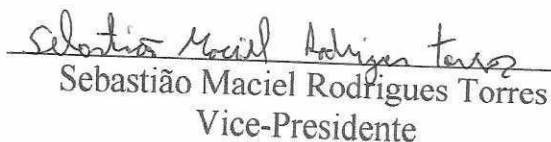 Sebastião Maciel Rodrigues Torres
Sebastião Maciel Rodrigues Torres
Vice-Presidente